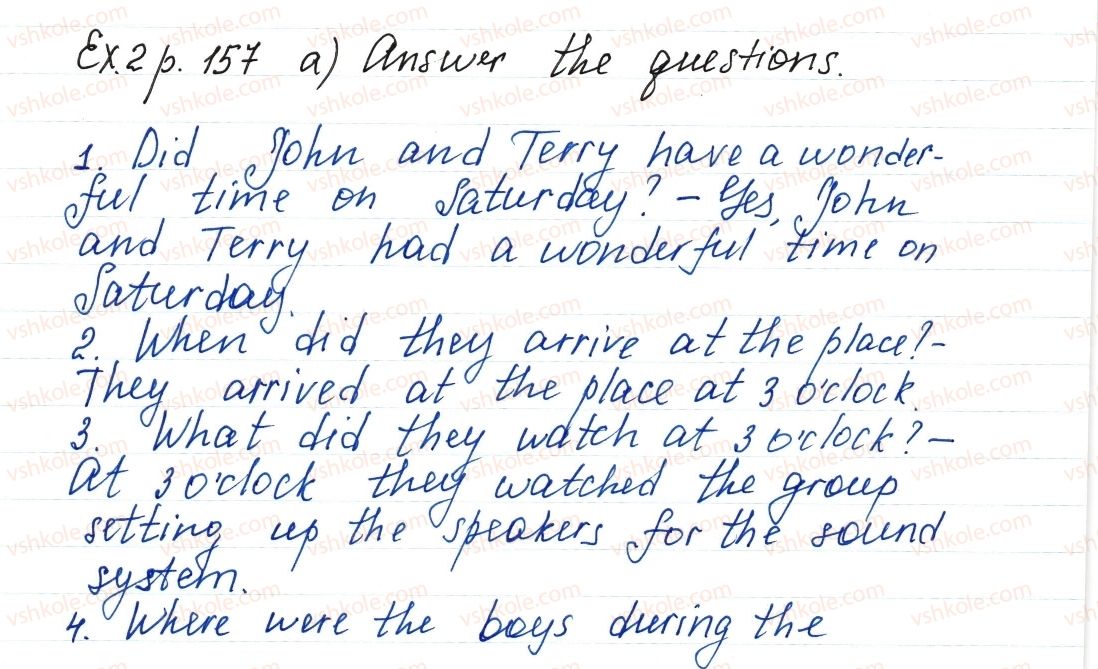 Ex.2 p. 157 a) Answer the questions.
1. Did John and Terry have a wonder-
ful time on Saturday? - Yes, John
and Terry had a wonderful time on
Saturday.
2. When did they arrive at the place? -
They arrived at the place at 3 o'clock.
3. What did they watch at 3 o'clock? -
At 3 o'clock they watched the group
setting up the speakers for the sound
system.
4. Where were the boys during the